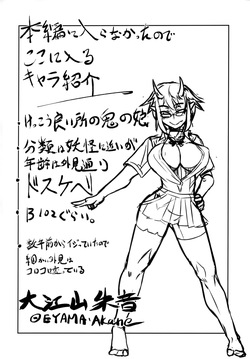 本編に入らなかったので
ここに入る
キャラ紹介
けっこう良い所の鬼の娘
分類は妖怪に近いが
年齢は外見通り
ドスケベ
B102ぐらい。
数年前から
ので
細かい外見は
コロコロ
ている
大江山朱音
OEYAMA・Akane